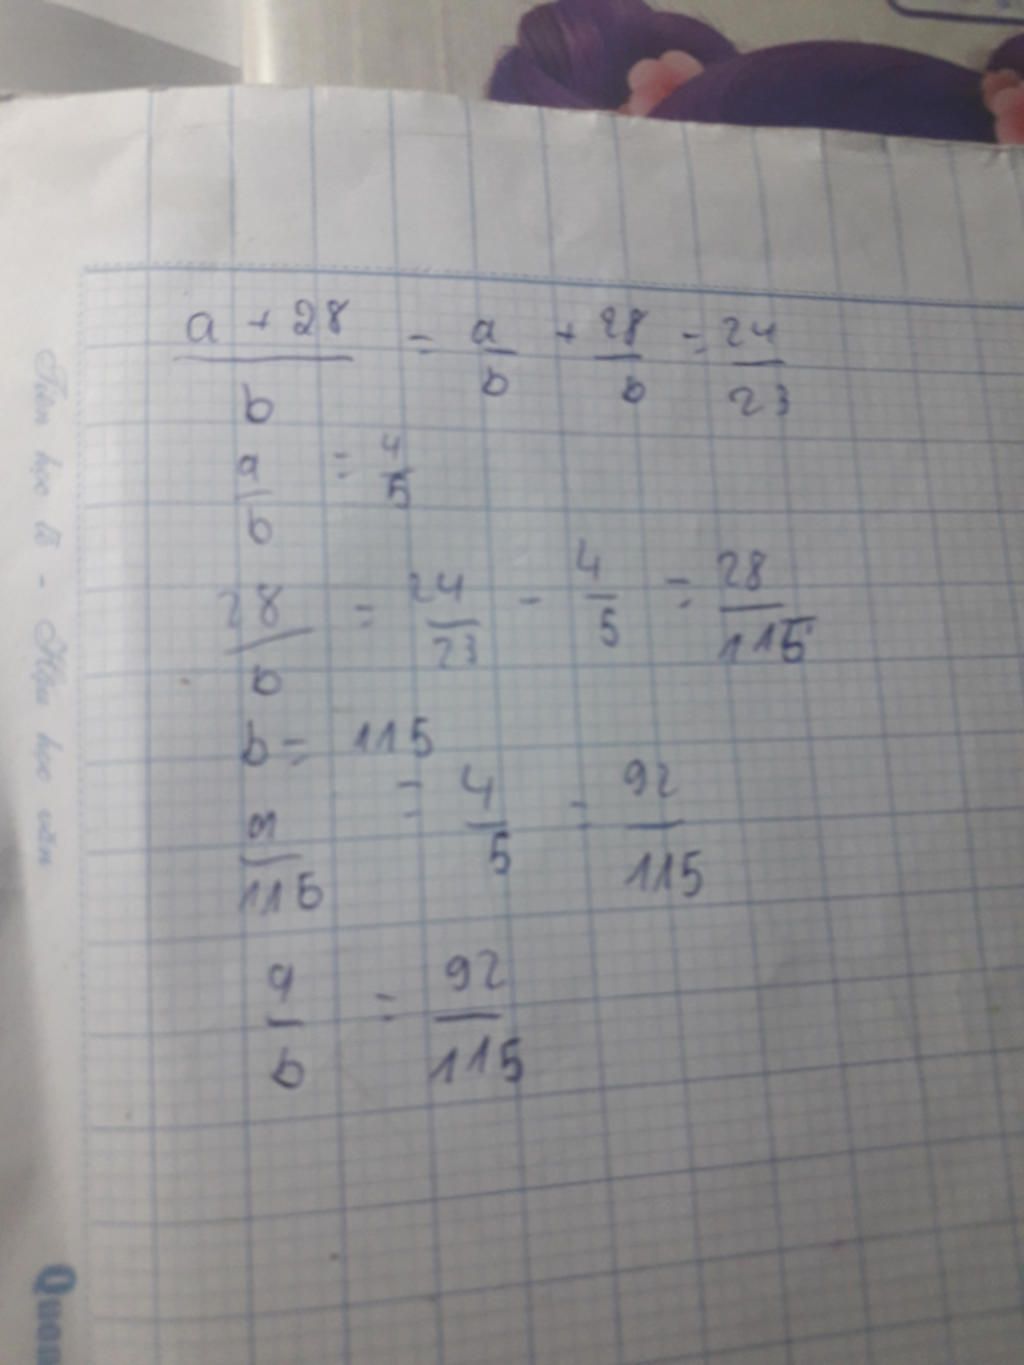 (a + 28)/b = a/b + 28/b = 24/23
a/b = 4/5
28/b = 24/23 - 4/5 = 28/115
b = 115
a/115 = 4/5 = 92/115
a/b = 92/115
Tiên học lễ - Hậu học văn